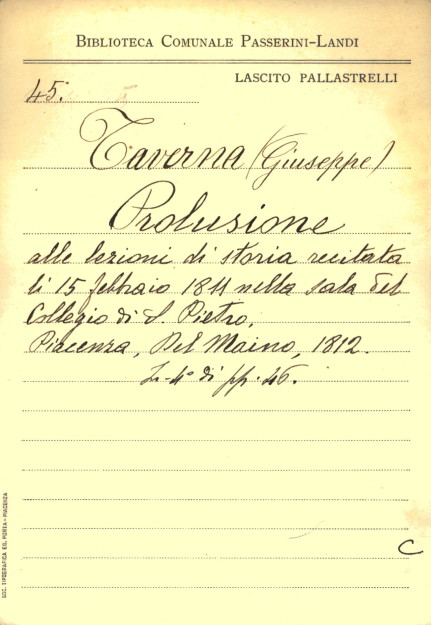 BIBLIOTECA COMUNALE PASSERINI-LANDI
LASCITO PALLASTRELLI
45.
Taverna (Giuseppe)
Prolusione
alle lezioni di storia recitata
li 15 febbraio 1811 nella sala del
Collegio di S. Pietro,
Piacenza, Del Maino, 1812.
In-4° di pp. 46.
C
SOC. TIPOGRAFICA ED. PORTA - PIACENZA